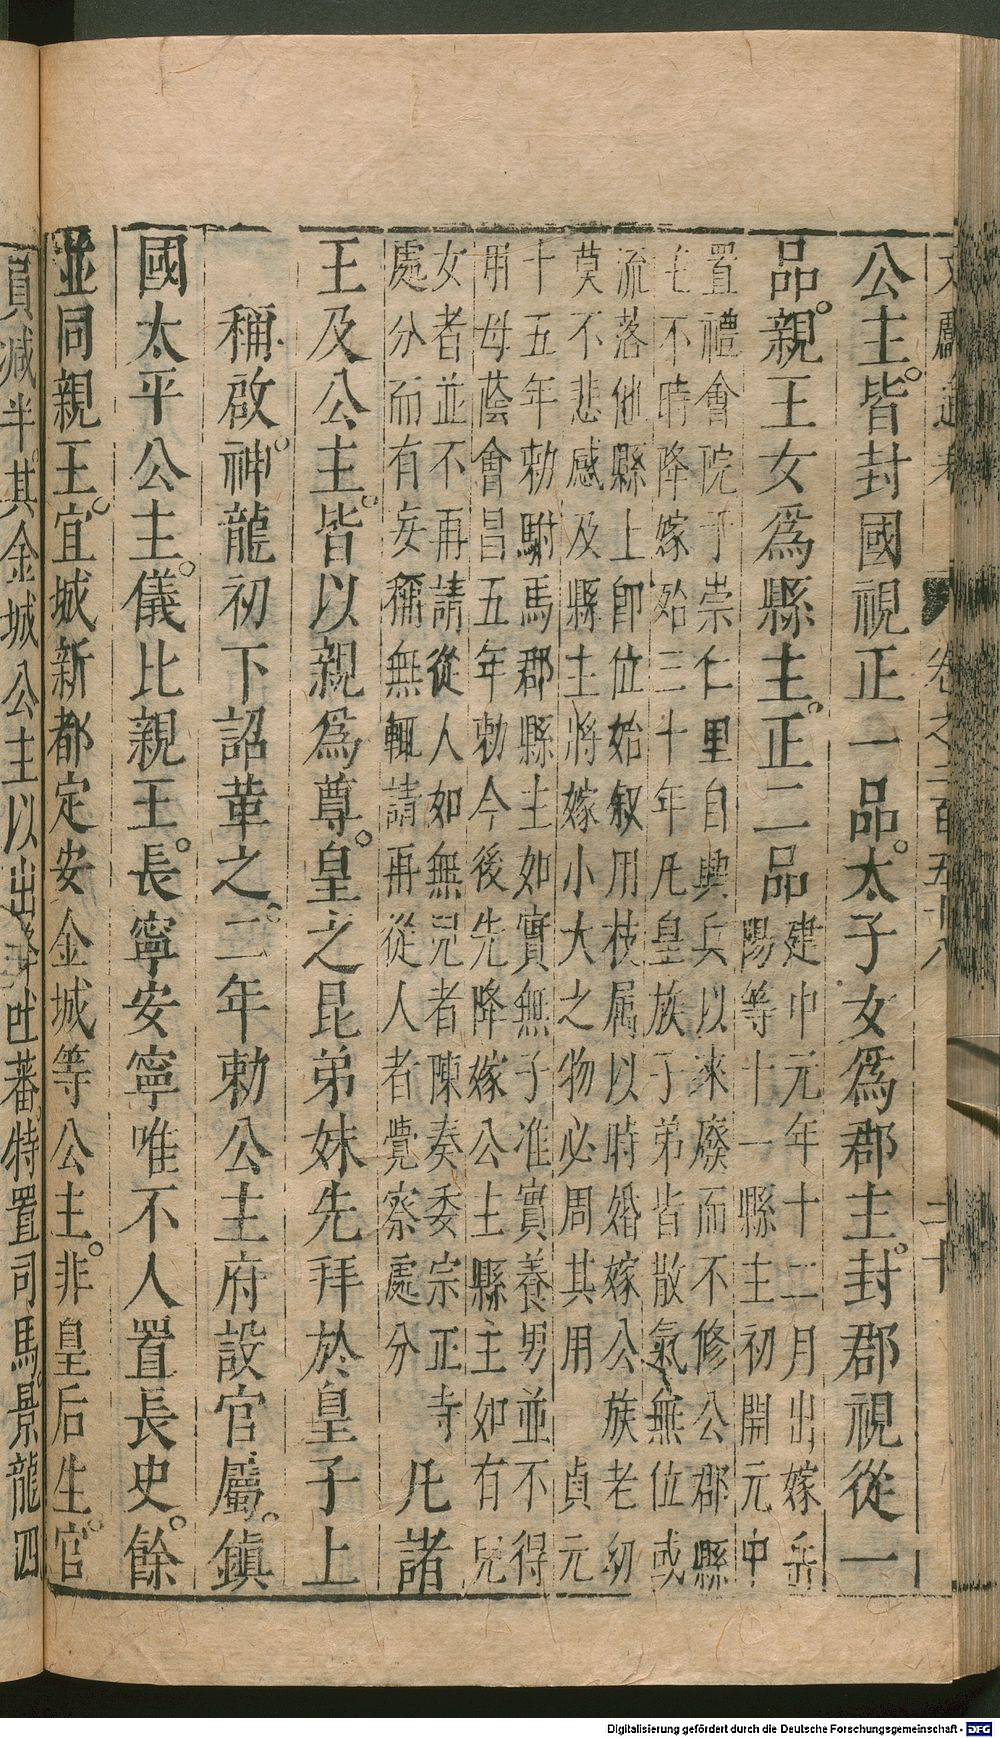 文獻通考 卷之二百五十八 二十
公主皆封國視正一品太子女爲郡主封郡視從一
品親王女爲縣主正二品
建中元年十二月出嫁岳
陽等十一縣主初開元中
置禮會院于崇仁里自興兵以來廢而不修公郡縣
主不時降嫁殆三十年凡皇族子弟皆散棄無位或
流落他縣上卽位始叙用枝属以時婚嫁公族老幼
莫不悲感及縣主將嫁小大之物必周其用 貞元
十五年勅駙馬郡縣主如實無子准實養男並不得
用母蔭會昌五年勅今後先降嫁公主縣主如有兒
女者並不再請從人如無兒者陳奏委宗正寺
處分而有妄稱無輒請再從人者覺察處分
凡諸
王及公主皆以親爲尊皇之昆弟妹先拜於皇子上
稱啟神龍初下詔革之二年勅公主府設官屬鎮
國太平公主儀比親王長寧安寧唯不人置長史餘
並同親王宜城新都定安金城等公主非皇后生官
員减半其金城公主以出降吐蕃特置司馬景龍四
Digitalisierung gefördert durch die Deutsche Forschungsgemeinschaft - DFG